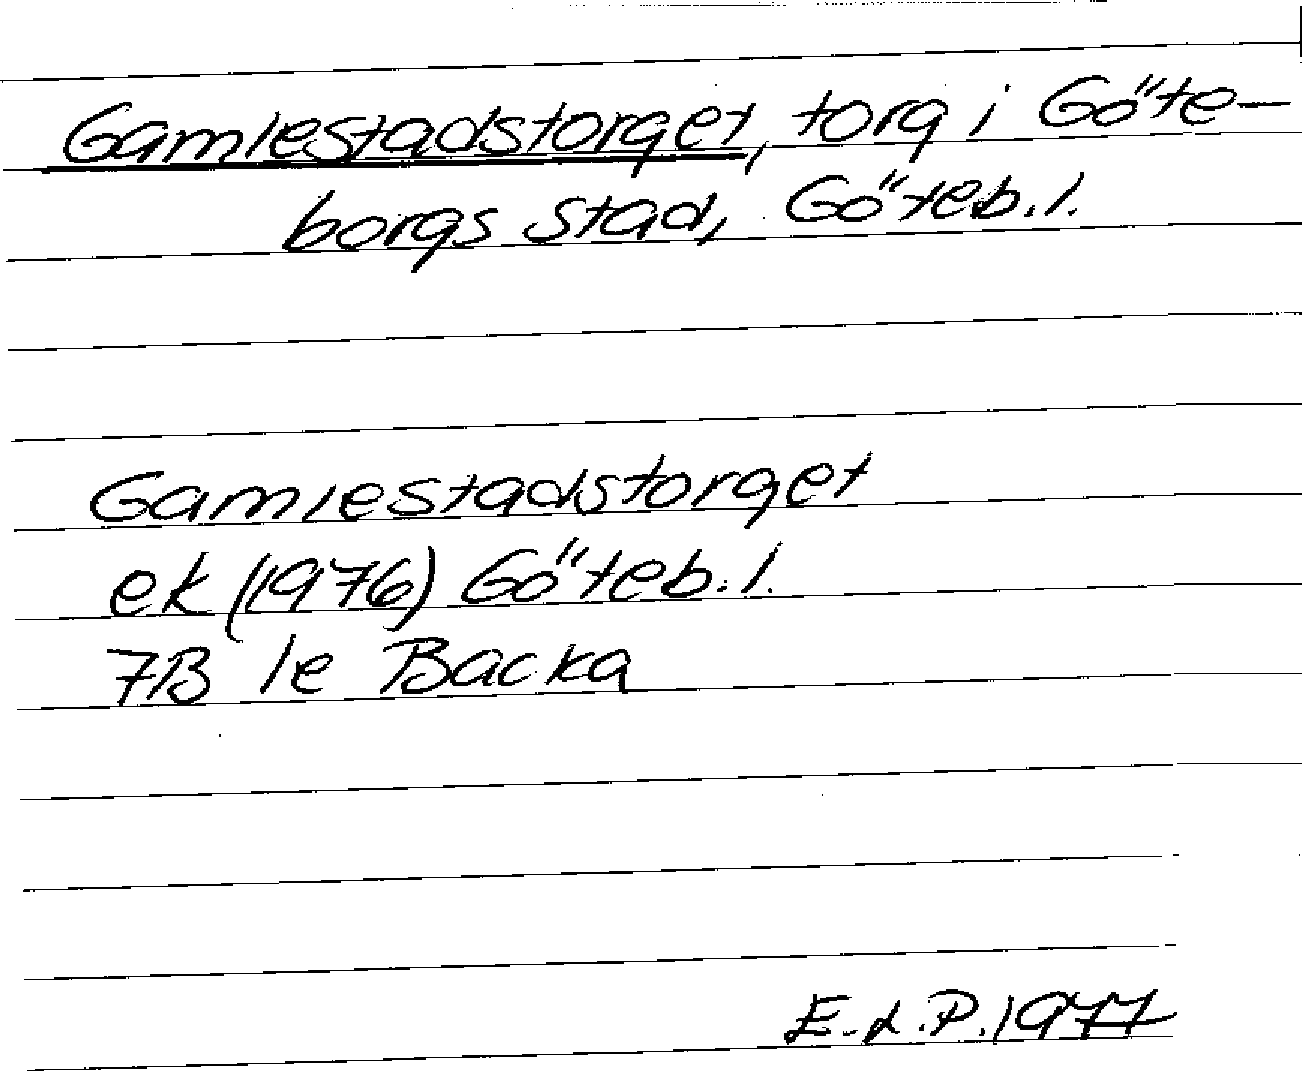 Gamlestadstorget, torg i Göte-
borgs stad, Göteb. l.
Gamlestadstorget
ek (1976) Göteb. l.
7B 1e Backa
E.L.P. 1977